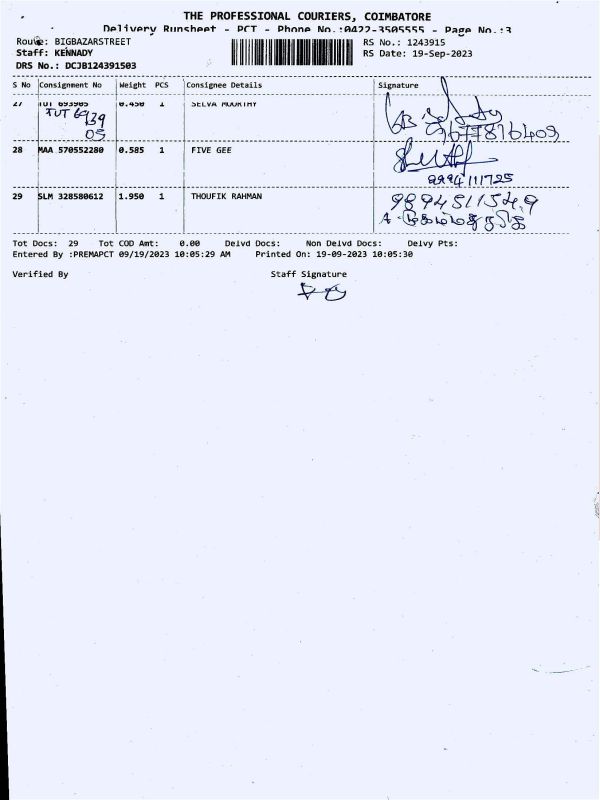 THE PROFESSIONAL COURIERS, COIMBATORE
Delivery Runsheet - PCT - Phone No.:0422-3505555 - Page No.:3
Route: BIGBAZARSTREET RS No.: 1243915
Staff: KENNADY RS Date: 19-Sep-2023
DRS No.: DCJB124391503
S No Consignment No Weight PCS Consignee Details Signature
27 TUT 693905 0.450 1 SELVA MOORTHY
TUT 6939
05
28 MAA 570552280 0.585 1 FIVE GEE
9994111725
29 SLM 328580612 1.950 1 THOUFIK RAHMAN
Tot Docs: 29 Tot COD Amt: 0.00 Delvd Docs: Non Delvd Docs: Delvy Pts:
Entered By :PREMAPCT 09/19/2023 10:05:29 AM Printed On: 19-09-2023 10:05:30
Verified By Staff Signature